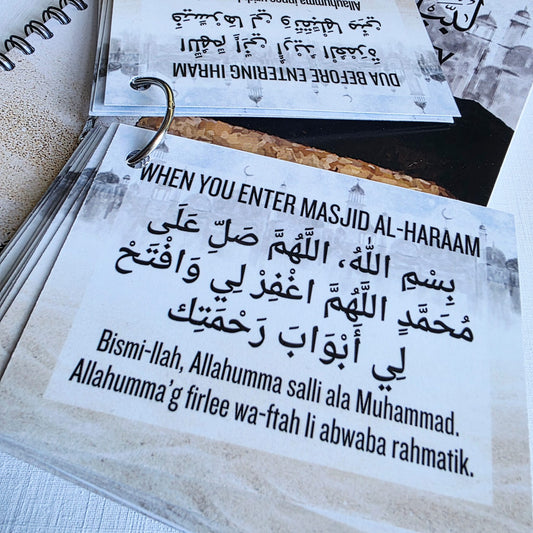 DUA BEFORE ENTERING IHRAM
اللَّهُمَّ إِنِّي أُرِيدُ الْعُمْرَةَ
فَيَسِّرْهَا لِي وَتَقَبَّلْهَا مِنِّي
Allahumma
WHEN YOU ENTER MASJID AL-HARAAM
بِسْمِ اللَّهُ، اللَّهُمَّ صَلِّ عَلَى
مُحَمَّدٍ اللَّهُمَّ اغْفِرْ لِي وَافْتَحْ
لِي أَبْوَابَ رَحْمَتِك
Bismi-llah, Allahumma salli ala Muhammad.
Allahumma'g firlee wa-ftah li abwaba rahmatik.